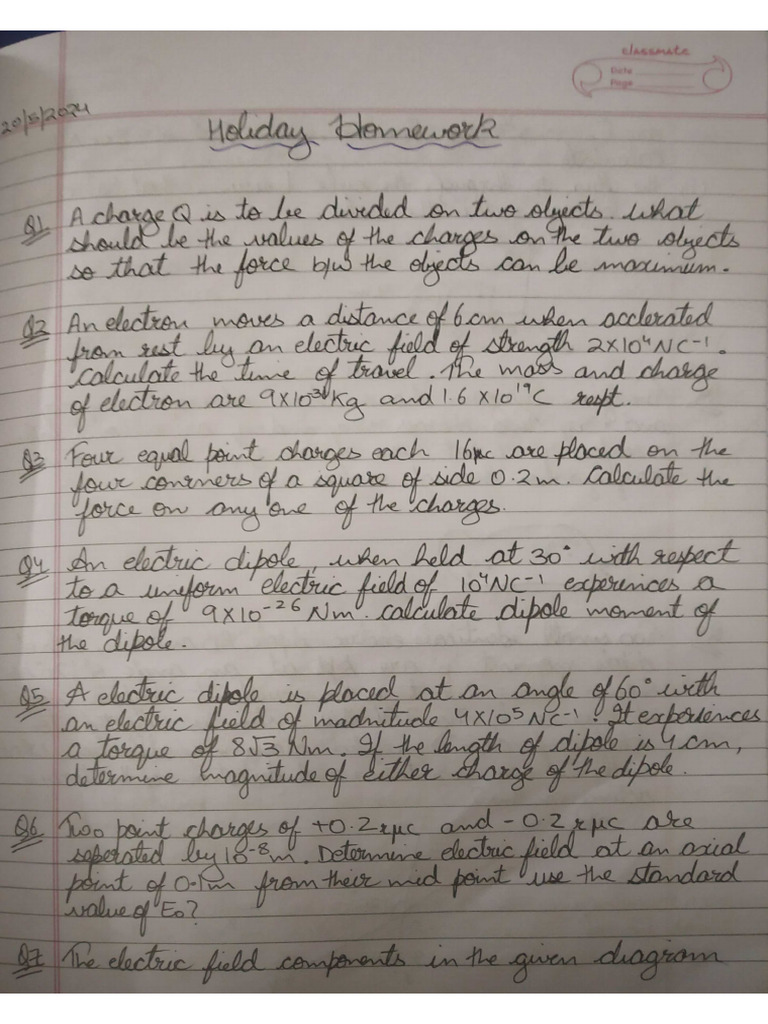 classmate
Date
Page
20/5/2024
Holiday Homework
Q1 A charge Q is to be divided on two objects. what
should be the values of the charges on the two objects
so that the force b/w the objects can be maximum.
Q2 An electron moves a distance of 6 cm when acclerated
from rest by an electric field of strength 2×10⁴ NC⁻¹.
Calculate the time of travel. The mass and charge
of electron are 9×10³¹ Kg and 1.6 ×10¹⁹C respt.
Q3 Four equal point charges each 16μc are placed on the
four cornners of a square of side 0.2m. Calculate the
force on any one of the charges.
Q4 An electric dipole, when held at 30° with respect
to a uneform electric field of 10⁴NC⁻¹ experiences a
torque of 9×10⁻²⁶ Nm. calculate dipole moment of
the dipole.
Q5 A electric dipole is placed at an angle of 60° with
an electric field of madnitude 4×10⁵ NC⁻¹. It experiences
a torque of 8√3 Nm. If the length of dipole is 4 cm,
determine magnitude of either charge of the dipole.
Q6 Two point charges of +0.2 μc and -0.2 μc are
seperated by 10⁻⁸m. Determine electric field at an axial
point of 0.1m from their mid point use the standard
value of E₀?
Q7 The electric field components in the given diagram